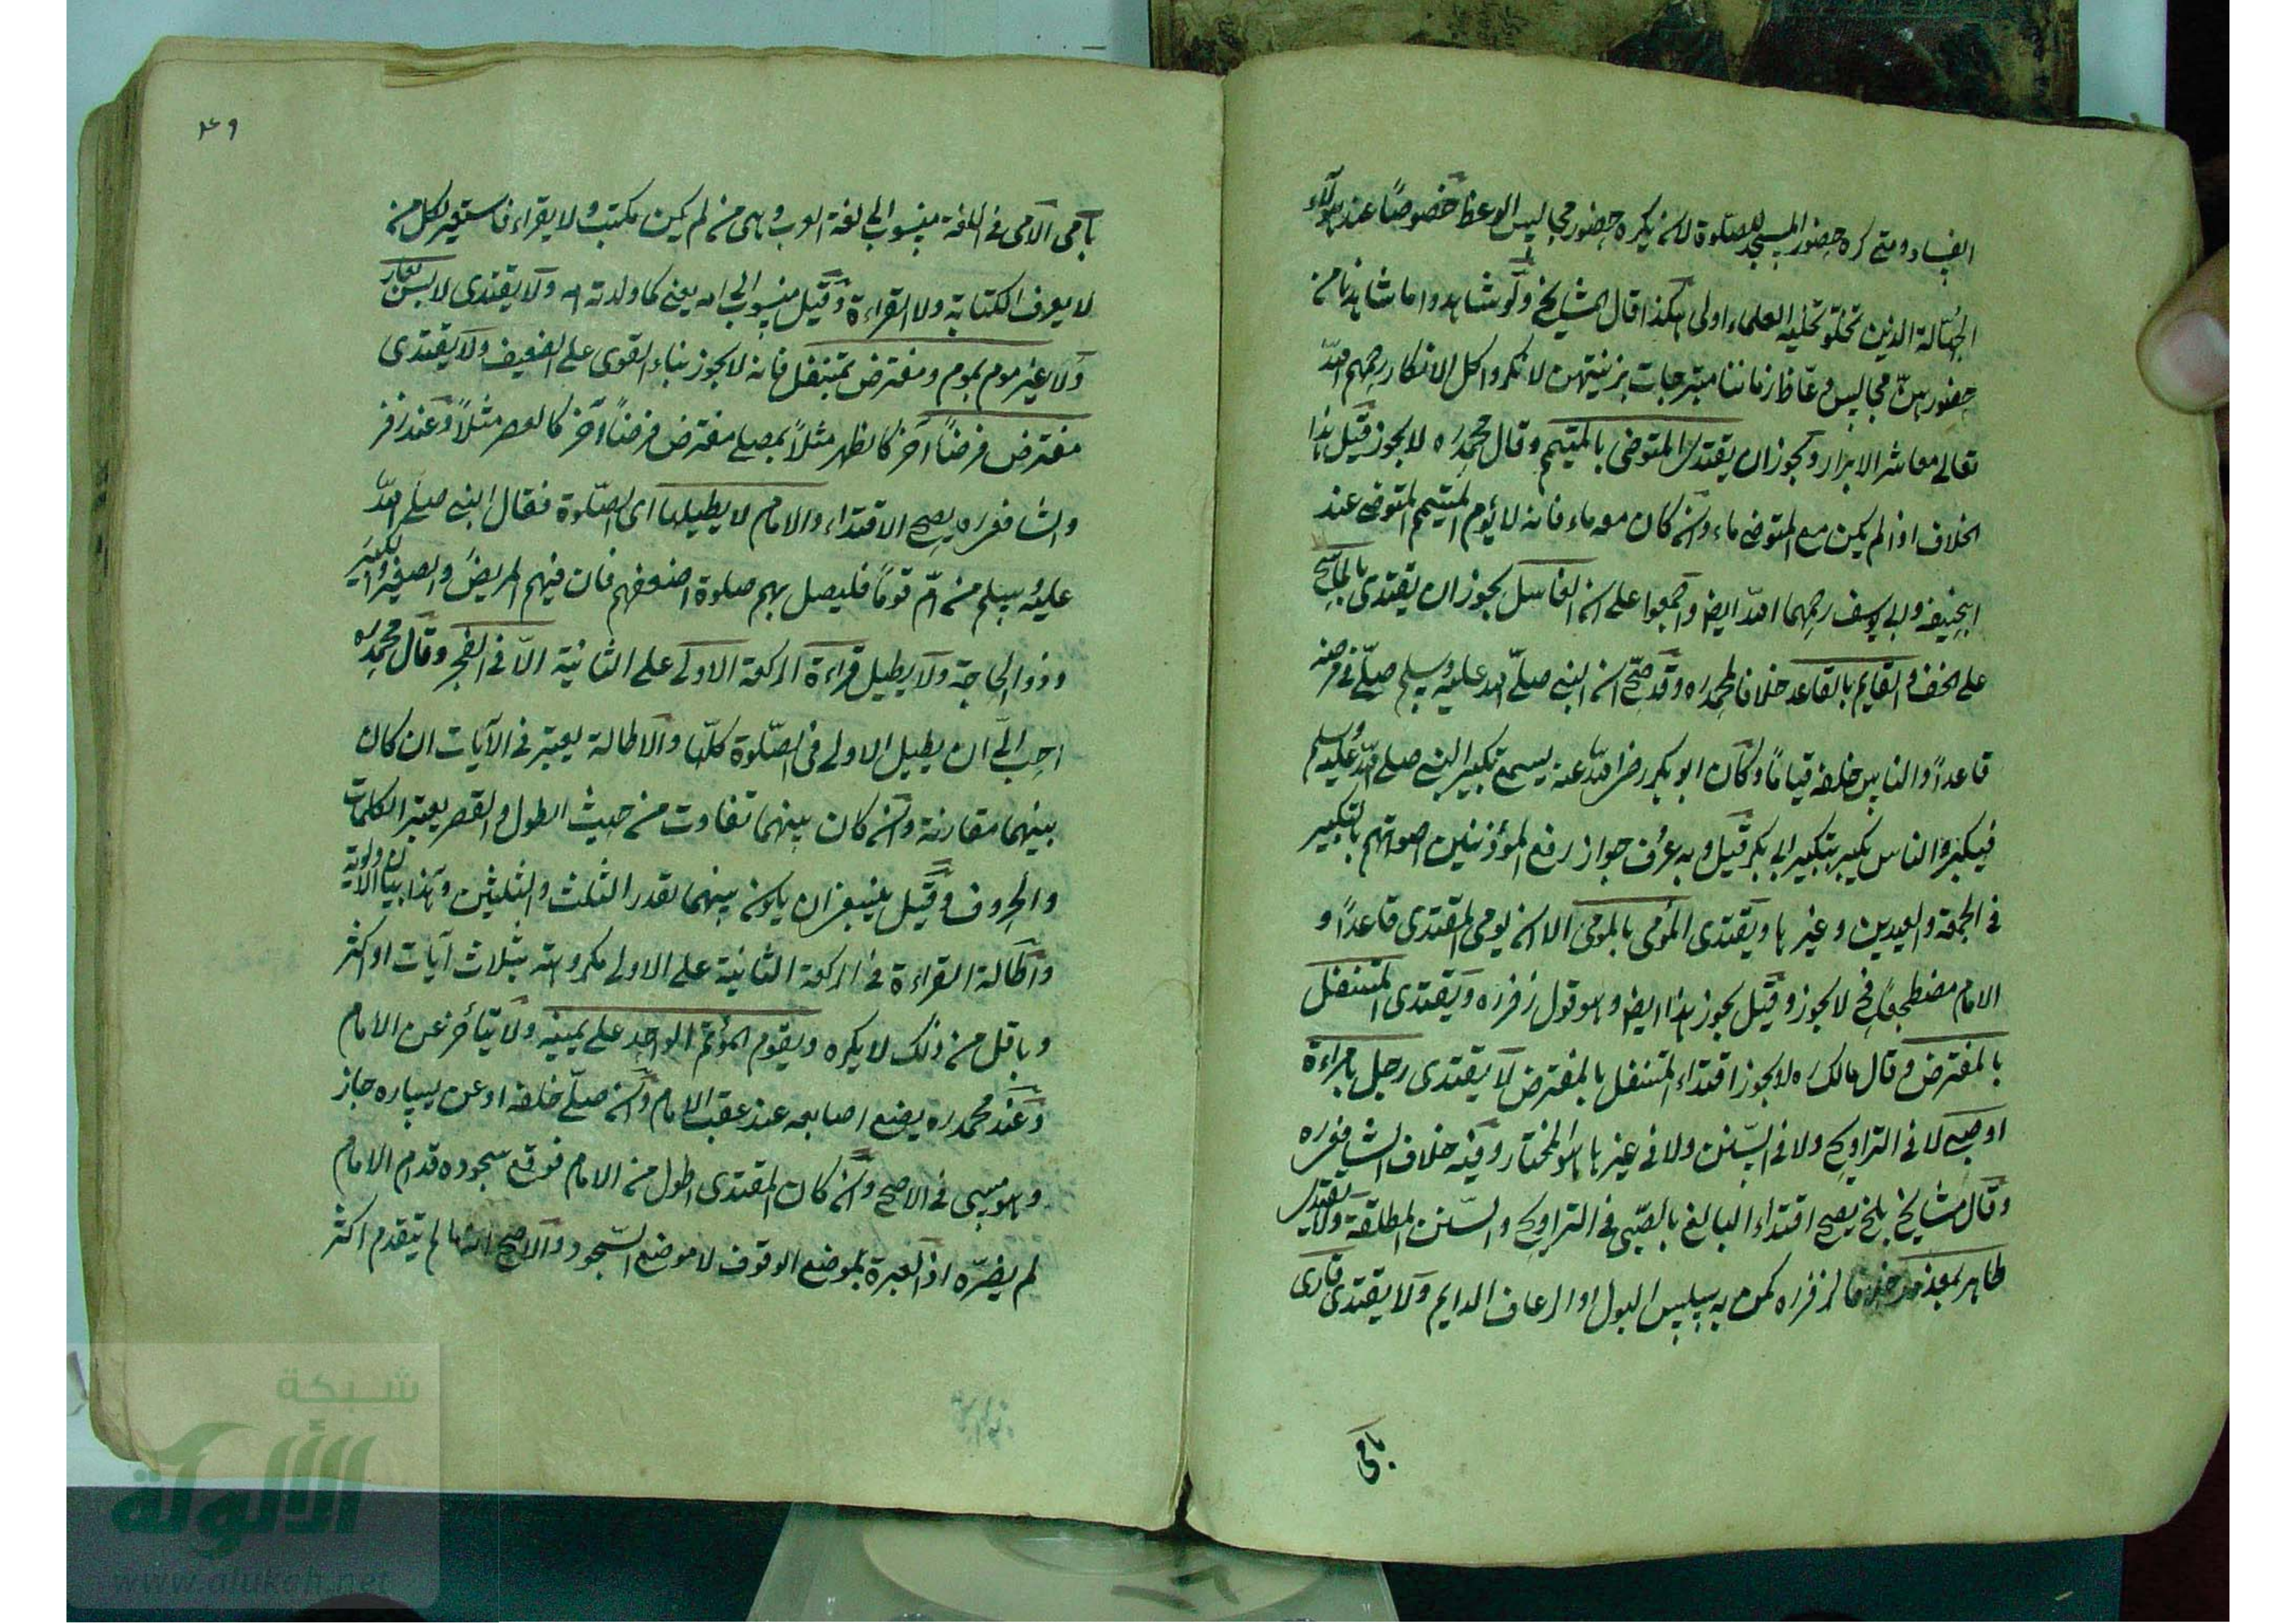 الفساد ومتى كره حضور المسجد للصلوة لانه يكره حضور مجالس الوعظ خصوصًا عند هولاء
الجهالة الذين تحلو تحلية العلماء اولى هكذا قال المشايخ ولو شاهدوا ما شاهدنا من
حضورهن مجالس وعّاظ زماننا متبرجات بزينتهن لانكروا كل الانكار رحمهم الله
تعالى معاشر الابرار ويجوز ان يقتدى المتوضى بالمتيمم وقال محمد ره لا يجوز قيل هذا
الخلاف اذا لم يكن مع المتوضى ماء وان كان معه ماء فانه لا يؤم المتيمم المتوضى عند
ابيحنيفه وابي يوسف رحمهما الله ايضا واجمعوا على ان الغاسل يجوز ان يقتدى بالماسح
على الخف والقايم بالقاعد خلافا لمحمد ره وقد صحّ ان النبى صلّى الله عليه وسلم صلّى فى مرضه
قاعدًا والناس خلفه قيامًا وكان ابو بكر رضى الله عنه يسمع تكبير النبى صلى الله عليه وسلم
فيكبر والناس يكبر بتكبير ابى بكر قيل وبه عرف جواز رفع المؤذنين اصواتهم بالتكبير
فى الجمعة والعيدين وغيرها ويقتدى المؤمى بالمومى الا ان يومى المقتدى قاعدًا و
الامام مضطجعًا فح لا يجوز وقيل يجوز هذا ايضا وهو قول زفر ره ويقتدى المتنفل
بالمفترض وقال مالك ره لا يجوز اقتداء المتنفل بالمفترض لا يقتدى رجل بامراءة
او صبى لا فى التراويح ولا فى السّنن ولا فى غيرها هو المختار وفيه خلاف الشافعى ره
وقال مشايخ بلخ يصح اقتداء البالغ بالصّبى فى التراويح والسّنن المطلقة ولا يقتدى
طاهر بمعذور خلافا لزفر ره كمن به سلس البول او الرعاف الدايم ولا يقتدى قارى
بامى
٤٩
بامى الامى فى اللغة منسوب الى لغة العرب وهى من لم يكن يكتب ولا يقراء فاستعير لكل من
لا يعرف الكتابة ولا القراءة وقيل منسوب الى امه يعنى كما ولدته امه ولا يقتدى لابس بعار
ولا غير موم بموم ومفترض بمتنفل فانه لا يجوز بناء القوى على الضعيف ولا يقتدى
مفترض فرضًا آخر كالظهر مثلاً بمصلى مفترض فرضًا آخر كالعصر مثلاً وعند زفر
والشافعى ره يصح الاقتداء والامام لا يطيلها اى الصّلوة فقال النبى صلى الله
عليه وسلم من امّ قومًا فليصل بهم صلوة اضعفهم فان فيهم المريض والصغير والكبير
وذو الحاجة ولا يطيل قراءة الركعة الاولى على الثانية الّا فى الفجر وقال محمد ره
احب الىّ ان يطيل الاولى فى الصّلوة كلّها والاطالة يعتبر فى الآيات ان كان
بينهما مقارنة وان كان بينهما تفاوت من حيث الطول والقصر يعتبر الكلمات
والحروف وقيل ينبغى ان يكون بينهما بقدر الثلث والثلثين وهذا بيان الاولوية
واطالة القراءة فى الركعة الثانية على الاولى مكروهة بثلاث آيات او اكثر
وباقل من ذلك لا يكره ويقوم المؤتم الواحد على يمينه ولا يتأخر عن الامام
وعند محمد ره يضع اصابعه عند عقب الامام وان صلّى خلفه او عن يساره جاز
وهو مسى فى الاصح وان كان المقتدى اطول من الامام فوقع سجوده قدام الامام
لم يضرّه اذ العبرة بموضع الوقوف لا موضع السّجود والاصح انه ما لم يتقدم اكثر
شبكة
الألوكة
www.alukah.net